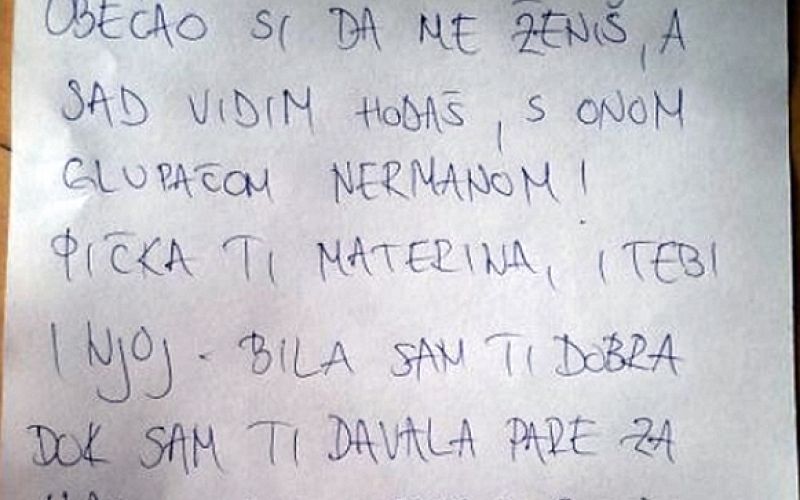 OBEĆAO SI DA ME ŽENIŠ, A
SAD VIDIM HODAŠ, S ONOM
GLUPAČOM NERMANOM!
PIČKA TI MATERINA, I TEBI
I NJOJ - BILA SAM TI DOBRA
DOK SAM TI DAVALA PARE ZA